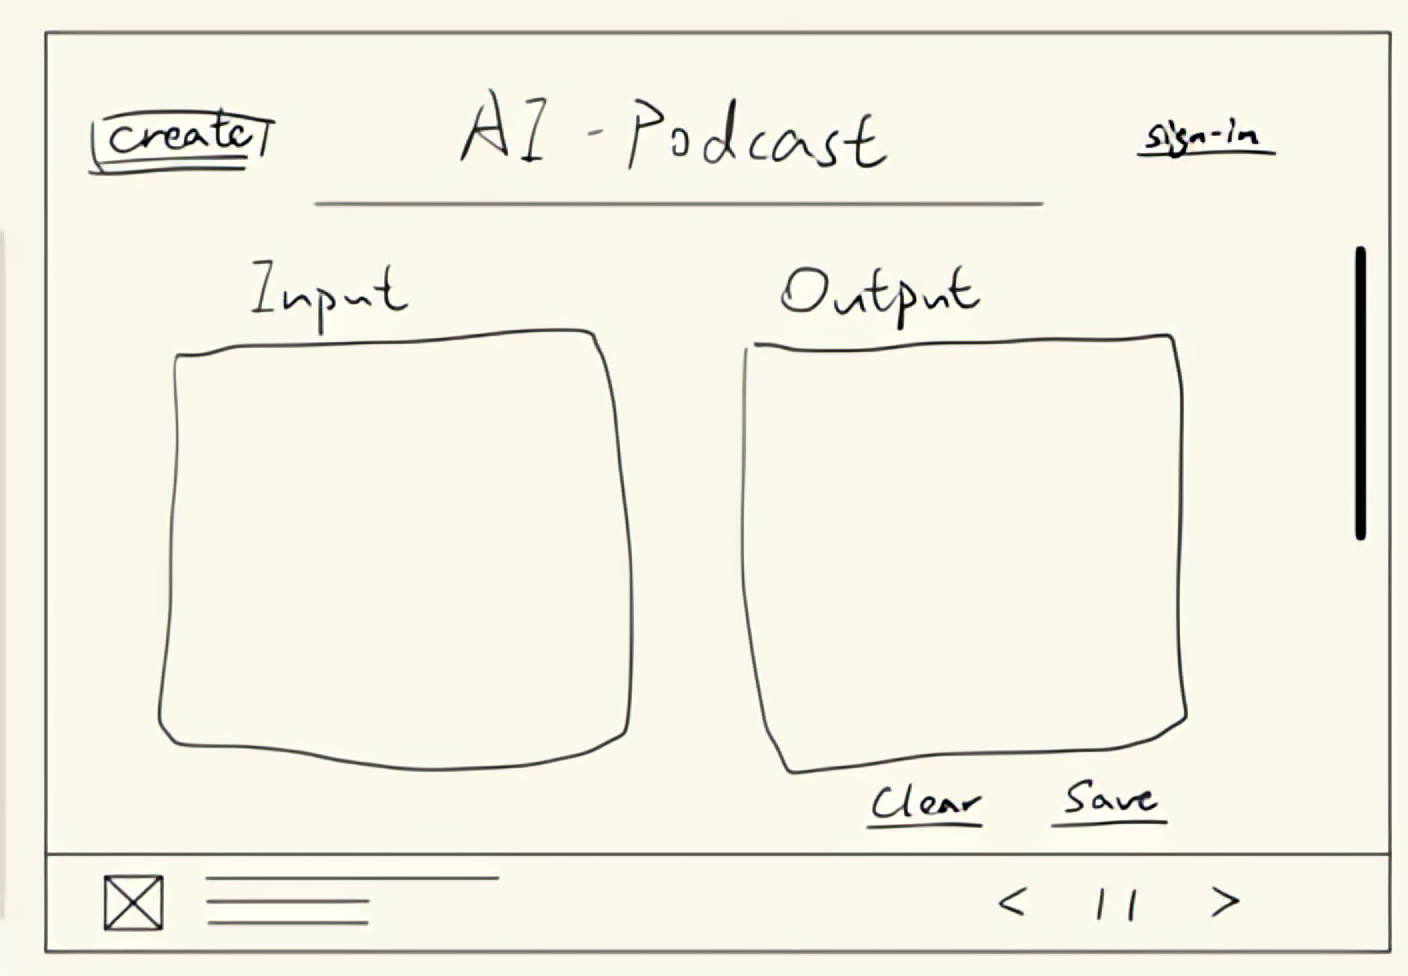 create
AI - Podcast
sign-in
Input
Output
Clear
Save
< || >